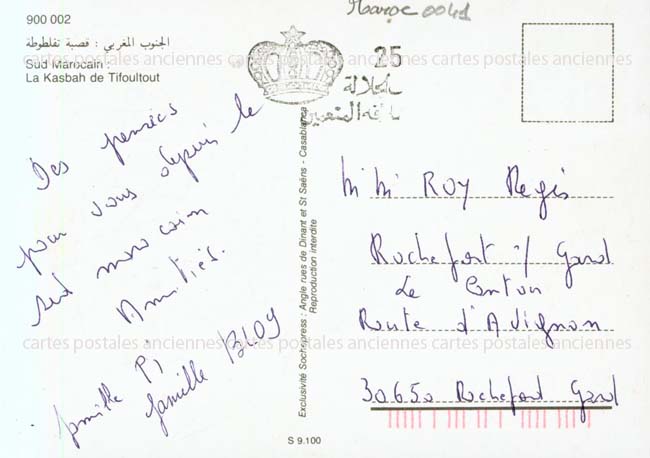 900 002
الجنوب المغربي : قصبة تفلطوطة
Sud Marocain :
La Kasbah de Tifoultout
Maroc 0041
25
جلالة
Des pensées
pour vous depuis le
sud marocain
Amitiés.
famille P1
famille BLOY
Exclusivité Sochepress : Angle rues de Dinant et St Saëns - Casablanca
Reproduction interdite
S 9.100
M Mr ROY Regis
Rochefort / Gard
Le Contou
Route d'Avignon
30650 Rochefort Gard
cartes postales anciennes cartes postales anciennes cartes postales anciennes
cartes postales anciennes cartes postales anciennes cartes postales anciennes